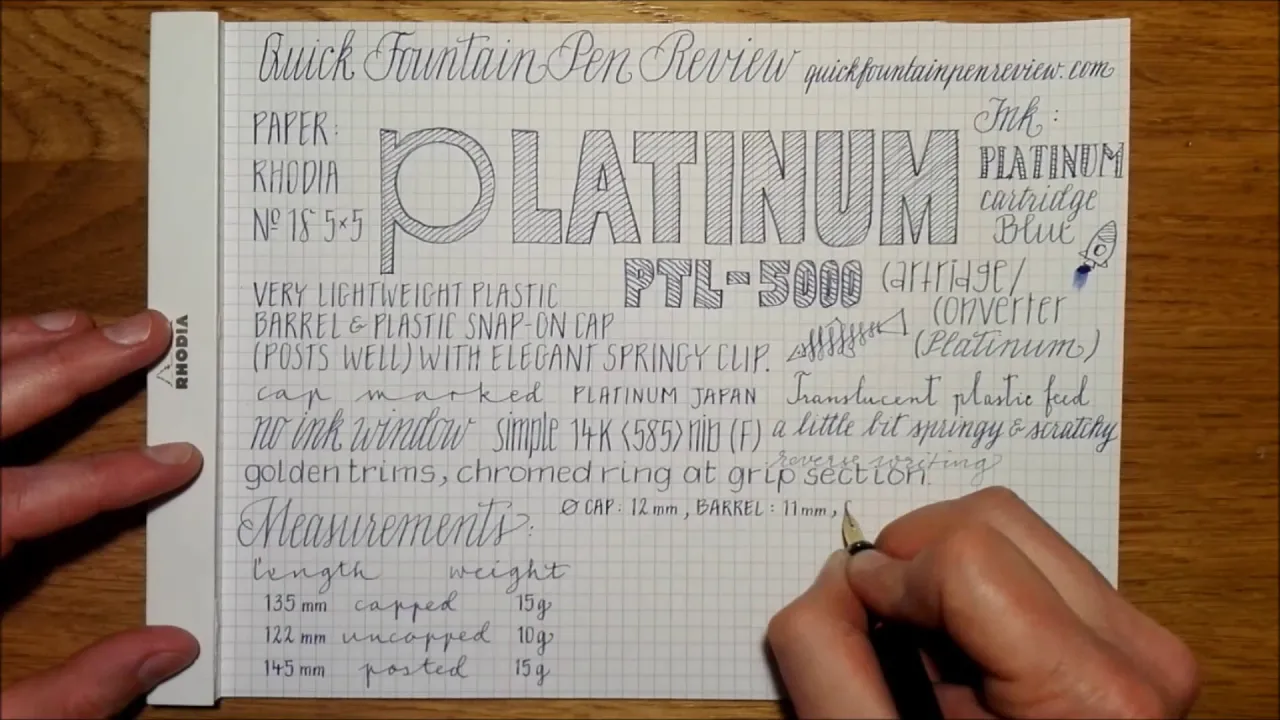 Quick Fountain Pen Review quickfountainpenreview.com
PAPER:
RHODIA
Nº 18 5×5
PLATINUM
PTL-5000
Ink:
PLATINUM
cartridge
Blue
Cartridge/
Converter
(Platinum)
VERY LIGHTWEIGHT PLASTIC
BARREL & PLASTIC SNAP-ON CAP
(POSTS WELL) WITH ELEGANT SPRINGY CLIP.
cap marked PLATINUM JAPAN
Translucent plastic feed
no ink window simple 14K <585> nib (F) a little bit springy & scratchy
reverse writing
golden trims, chromed ring at grip section.
Measurements:
Ø CAP: 12 mm, BARREL: 11 mm,
length weight
135 mm capped 15g
122 mm uncapped 10g
145 mm posted 15g
RHODIA